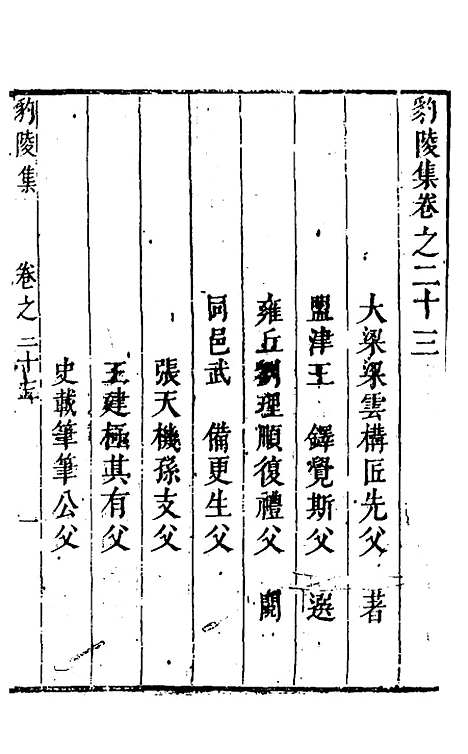 豹陵集卷之二十三
大梁梁雲構匠先父 著
盟津王 鐸覺斯父 選
雍丘劉理順復禮父 閱
同邑武 備更生父
張天機孫支父
王建極其有父
史載筆筆公父
豹陵集 卷之二十三 一